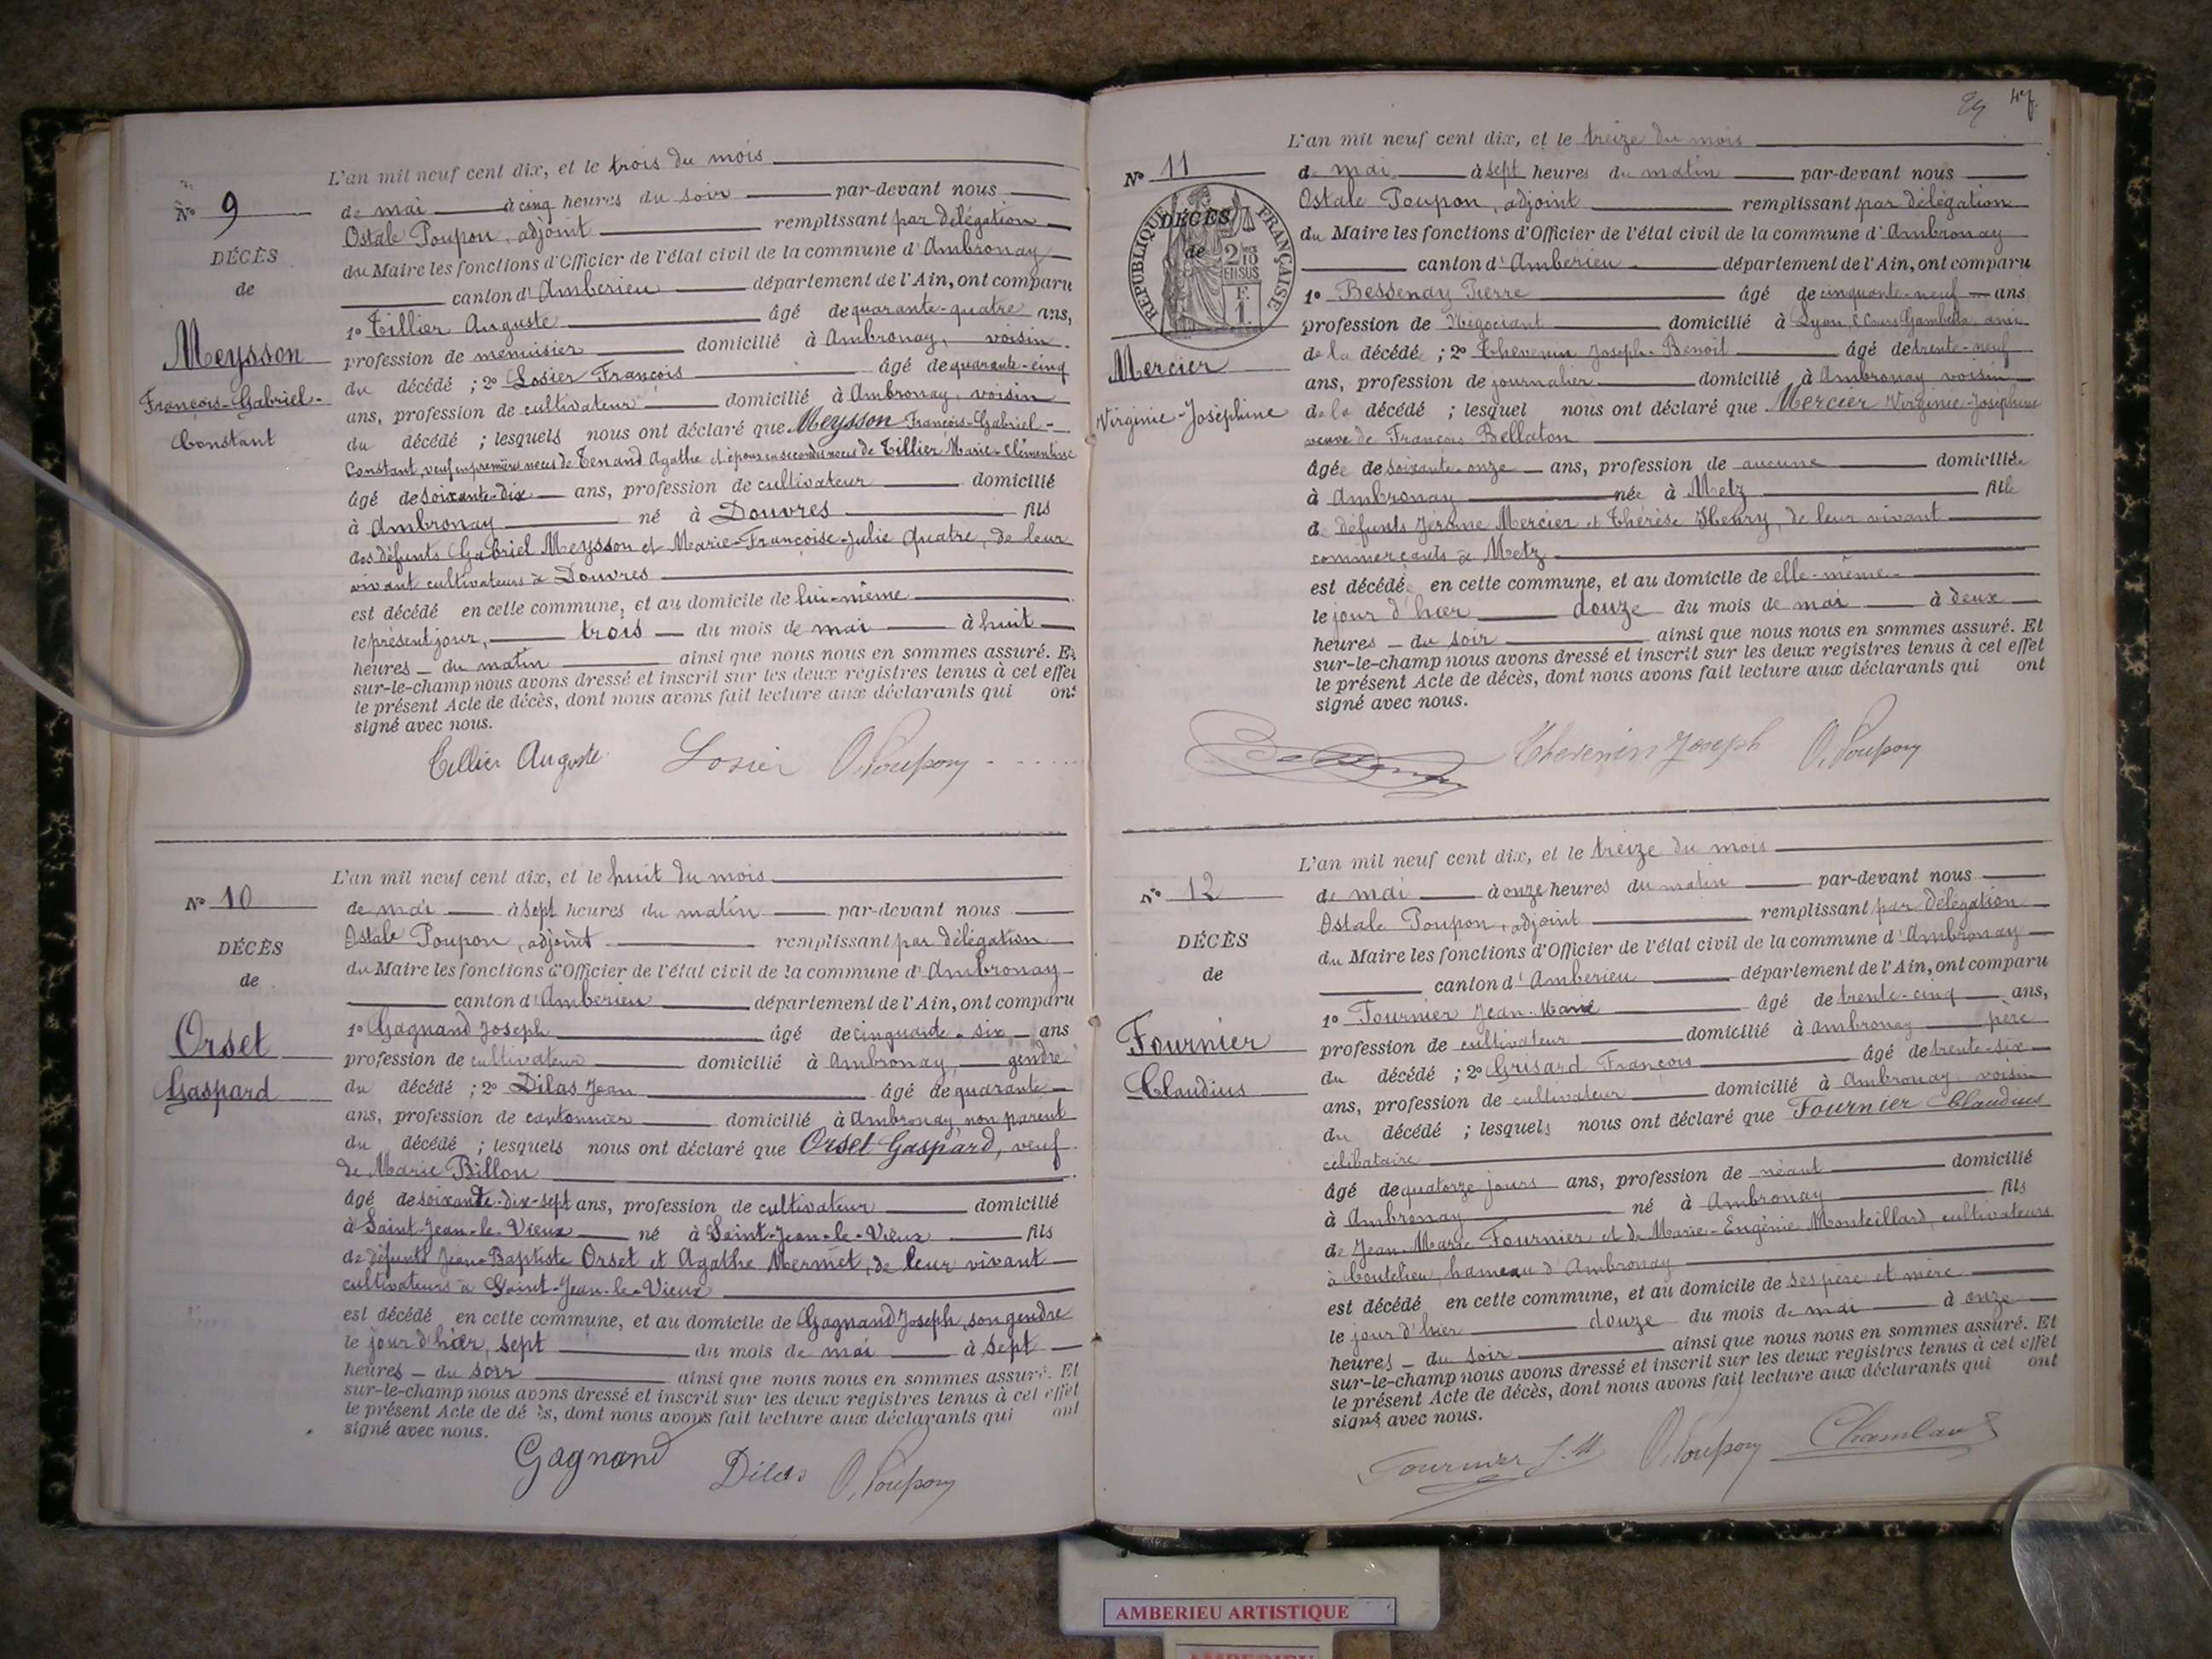 L'an mil neuf cent dix, et le trois du mois
N° 9
de mai à cinq heures du soir par-devant nous
Ostale Poupon, adjoint remplissant par délégation
DÉCÈS
du Maire les fonctions d'Officier de l'état civil de la commune d'Ambronay
de
canton d'Amberieu département de l'Ain, ont comparu
1° Tillier Auguste âgé de quarante-quatre ans,
Meysson
profession de menuisier domicilié à Ambronay, voisin
du décédé ; 2° Losier François âgé de quarante-cinq
François-Gabriel-
ans, profession de cultivateur domicilié à Ambronay, voisin
Constant
du décédé ; lesquels nous ont déclaré que Meysson François-Gabriel-
Constant, veuf en premières noces de Tenand Agathe et époux en secondes noces de Tillier Marie-Clémentine
âgé de soixante-dix ans, profession de cultivateur domicilié
à Ambronay né à Douvres fils
des défunts Gabriel Meysson et Marie-Françoise-Julie Quatre, de leur
vivant cultivateurs à Douvres
est décédé en cette commune, et au domicile de lui-même
le présent jour, trois du mois de mai à huit
heures du matin ainsi que nous nous en sommes assuré. Et
sur-le-champ nous avons dressé et inscrit sur les deux registres tenus à cet effet
le présent Acte de décès, dont nous avons fait lecture aux déclarants qui ont
signé avec nous.
Tillier Auguste Losier O. Poupon
L'an mil neuf cent dix, et le huit du mois
N° 10
de mai à sept heures du matin par-devant nous
Ostale Poupon, adjoint remplissant par délégation
DÉCÈS
du Maire les fonctions d'Officier de l'état civil de la commune d'Ambronay
de
canton d'Amberieu département de l'Ain, ont comparu
1° Gagnand Joseph âgé de cinquante-six ans
Orset
profession de cultivateur domicilié à Ambronay, gendre
Gaspard
du décédé ; 2° Dilas Jean âgé de quarante
ans, profession de cantonnier domicilié à Ambronay, non parent
du décédé ; lesquels nous ont déclaré que Orset Gaspard, veuf
de Marie Billon
âgé de soixante-dix-sept ans, profession de cultivateur domicilié
à Saint-Jean-le-Vieux né à Saint-Jean-le-Vieux fils
de défunts Jean-Baptiste Orset et Agathe Mermet, de leur vivant
cultivateurs à Saint-Jean-le-Vieux
est décédé en cette commune, et au domicile de Gagnand Joseph, son gendre
le jour d'hier, sept du mois de mai à sept
heures du soir ainsi que nous nous en sommes assuré. Et
sur-le-champ nous avons dressé et inscrit sur les deux registres tenus à cet effet
le présent Acte de décès, dont nous avons fait lecture aux déclarants qui ont
signé avec nous.
Gagnand Dilas O. Poupon
L'an mil neuf cent dix, et le treize du mois
N° 11
de mai à sept heures du matin par-devant nous
Ostale Poupon, adjoint remplissant par délégation
DÉCÈS
RÉPUBLIQUE FRANÇAISE
2/10 EN SUS
F. 1.
du Maire les fonctions d'Officier de l'état civil de la commune d'Ambronay
de
canton d'Amberieu département de l'Ain, ont comparu
1° Bessenay Pierre âgé de cinquante-neuf ans
profession de Négociant domicilié à Lyon, Cours Gambetta ami
Mercier
de la décédée ; 2° Thevenin Joseph-Benoit âgé de trente-neuf
ans, profession de journalier domicilié à Ambronay voisin
Virginie-Joséphine
de la décédé ; lesquel nous ont déclaré que Mercier Virginie-Joséphine
veuve de François Bellaton
âgée de soixante-onze ans, profession de aucune domiciliée
à Ambronay née à Metz fille
de défunts Jérôme Mercier et Thérèse Henry, de leur vivant
commerçants à Metz
est décédée en cette commune, et au domicile de elle-même
le jour d'hier douze du mois de mai à deux
heures du soir ainsi que nous nous en sommes assuré. Et
sur-le-champ nous avons dressé et inscrit sur les deux registres tenus à cet effet
le présent Acte de décès, dont nous avons fait lecture aux déclarants qui ont
signé avec nous.
Thevenin Joseph O. Poupon
L'an mil neuf cent dix, et le treize du mois
N° 12
de mai à onze heures du matin par-devant nous
Ostale Poupon, adjoint remplissant par délégation
DÉCÈS
du Maire les fonctions d'Officier de l'état civil de la commune d'Ambronay
de
canton d'Amberieu département de l'Ain, ont comparu
1° Fournier Jean-Marie âgé de trente-cinq ans,
Fournier
profession de cultivateur domicilié à Ambronay père
Claudius
du décédé ; 2° Grisard François âgé de trente-six
ans, profession de cultivateur domicilié à Ambronay voisin
du décédé ; lesquels nous ont déclaré que Fournier Claudius
célibataire
âgé de quatorze jours ans, profession de néant domicilié
à Ambronay né à Ambronay fils
de Jean-Marie Fournier et de Marie-Eugénie Monteillard, cultivateurs
à Coutelieu, hameau d'Ambronay
est décédé en cette commune, et au domicile de ses père et mère
le jour d'hier douze du mois de mai à onze
heures du soir ainsi que nous nous en sommes assuré. Et
sur-le-champ nous avons dressé et inscrit sur les deux registres tenus à cet effet
le présent Acte de décès, dont nous avons fait lecture aux déclarants qui ont
signé avec nous.
Fournier J.M O. Poupon
AMBERIEU ARTISTIQUE
AMBERIEU